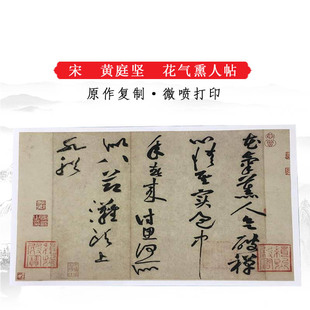 宋 黄庭坚 花气熏人帖
原作复制·微喷打印
花氣薰人欲破禪
心情其實過中
年春來詩思何所
似八節灘頭上
水船